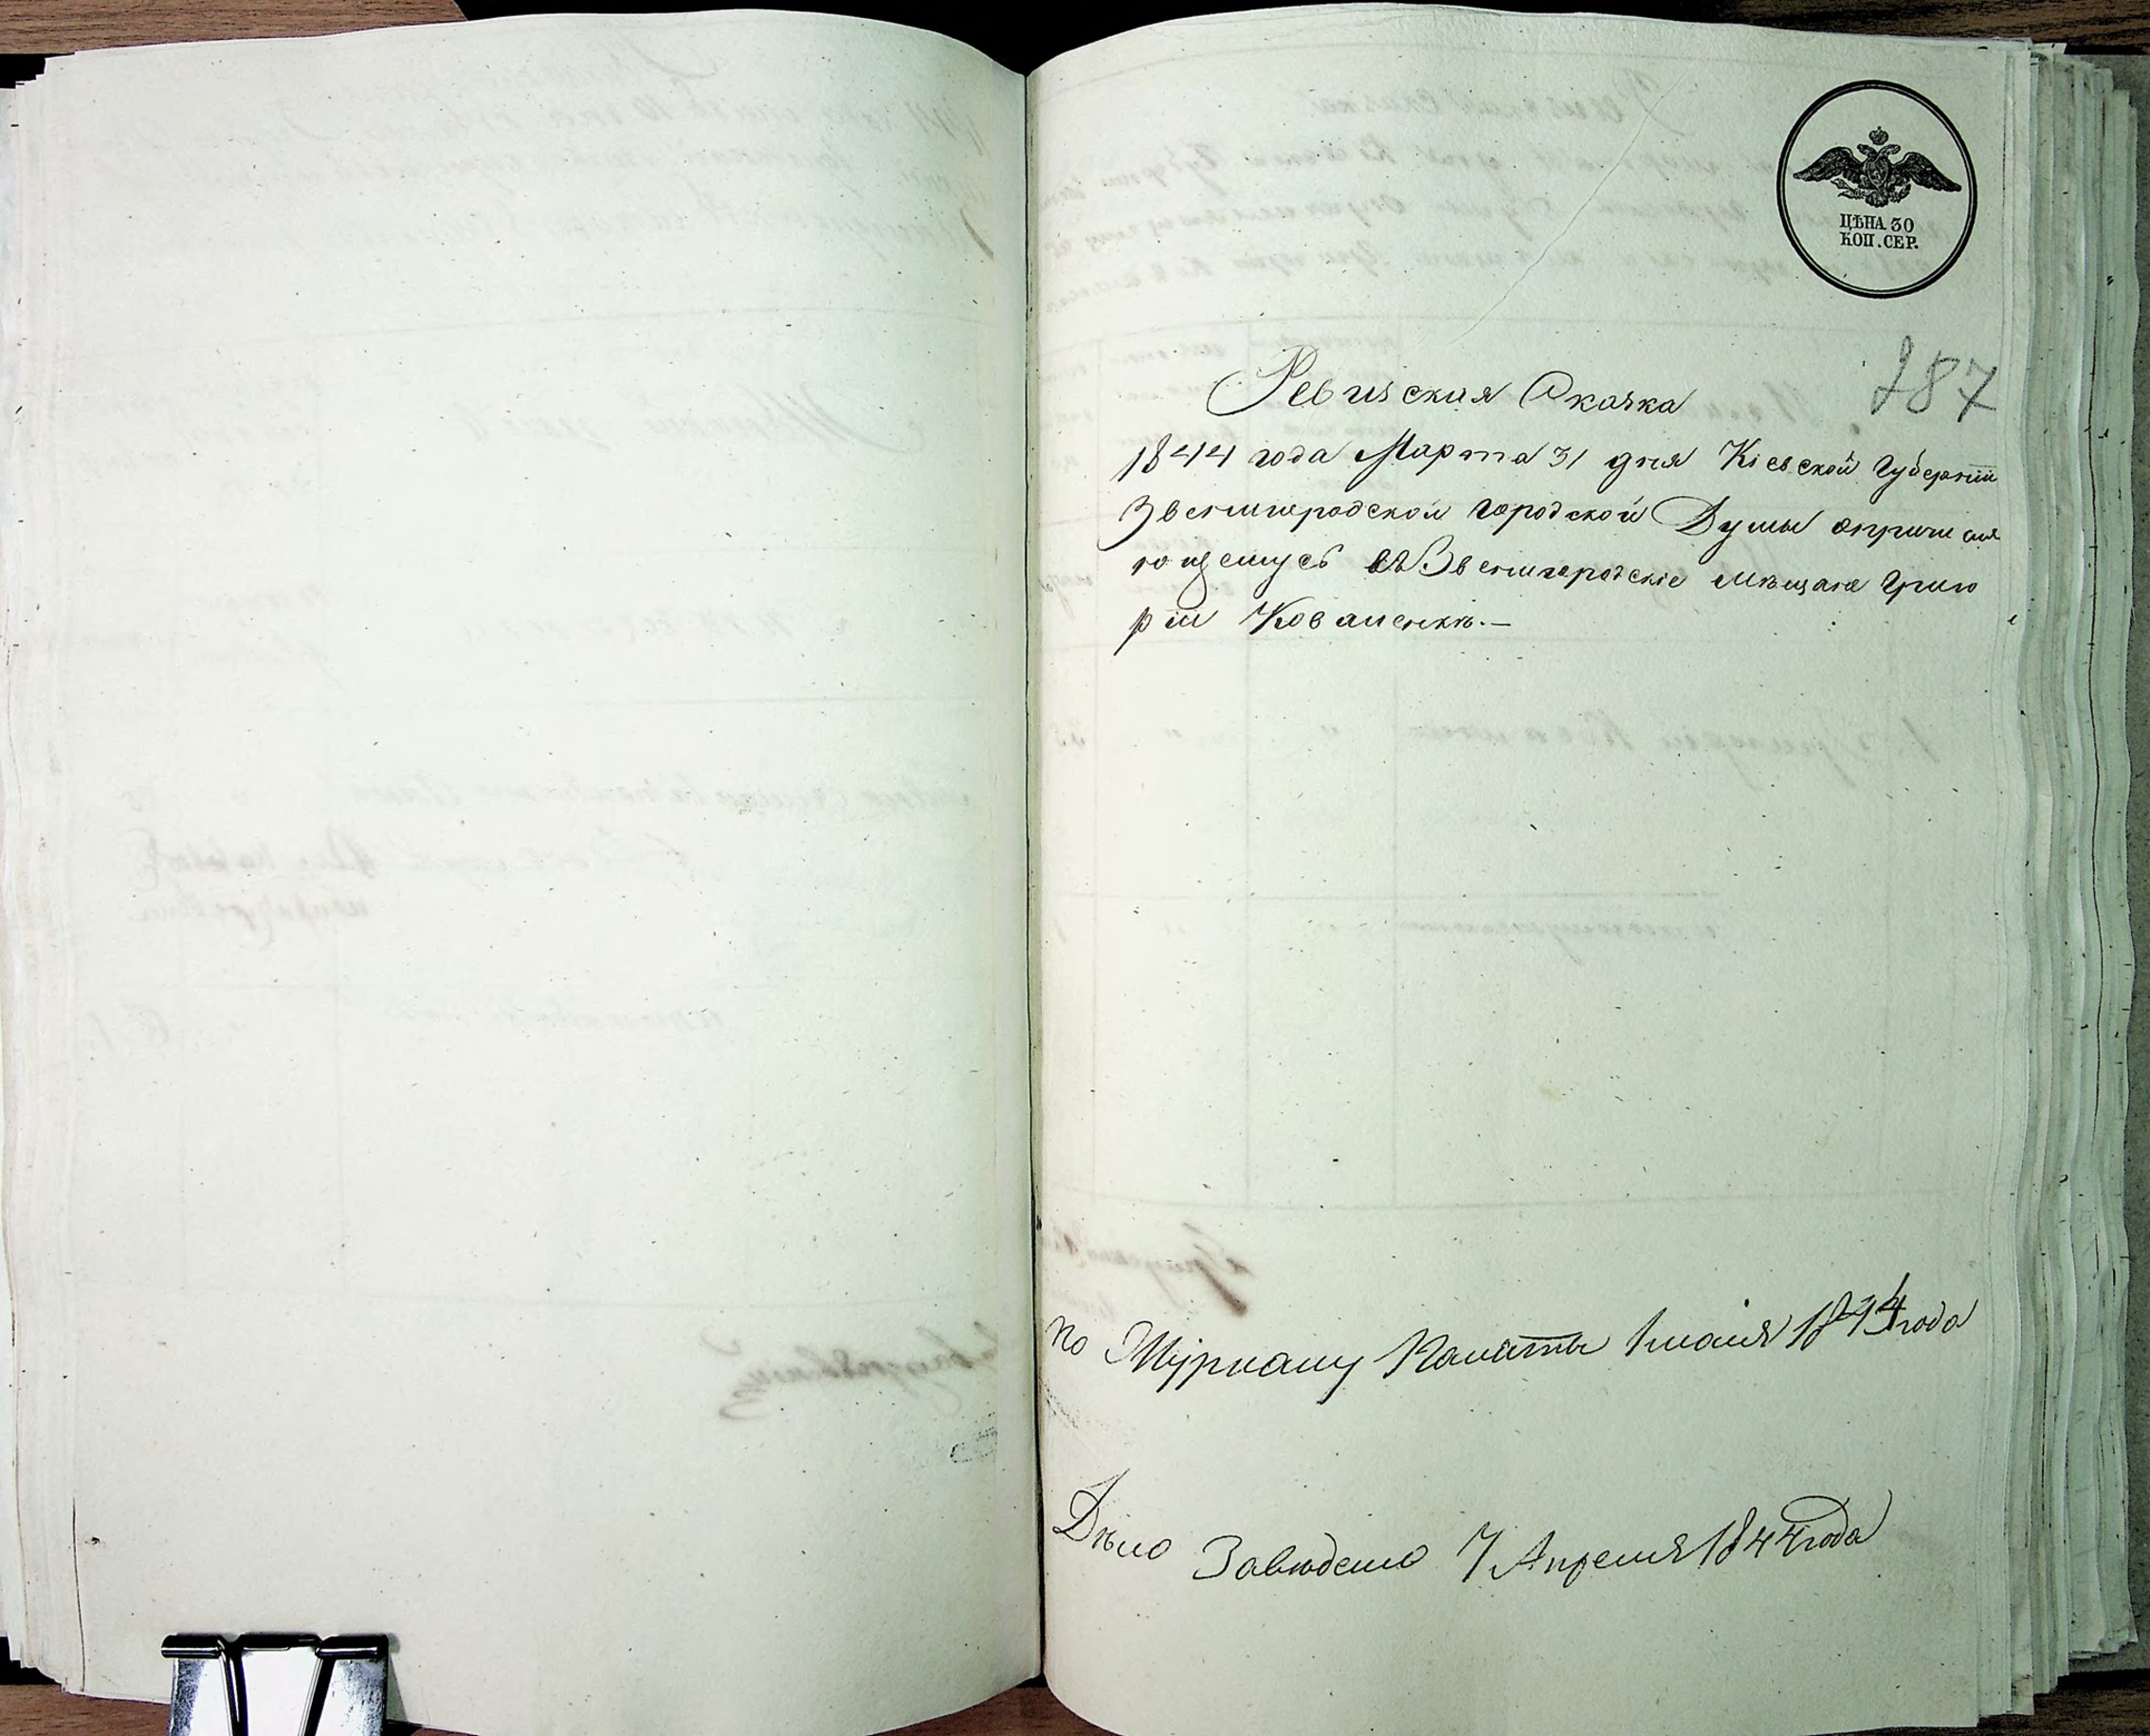 ЦѢНА 30
КОП. СЕР.
287
Ревизская Сказка
1844 года Марта 31 дня Кіевской Губерніи
Звенигородской городской Думы опричисля
ющемусь въ Звенигородскіе мѣщане Григо
рій Коваленкѣ.—
по Журналу Палаты 1844 года
Дѣло Заведено 7 Апреля 1844 года